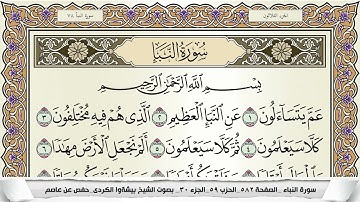 الجزء الثلاثون
سورة النبأ ٧٨
سُورَةُ النَّبَإِ
بِسْمِ اللَّهِ الرَّحْمَٰنِ الرَّحِيمِ
عَمَّ يَتَسَاءَلُونَ ١ عَنِ النَّبَإِ الْعَظِيمِ ٢ الَّذِي هُمْ فِيهِ مُخْتَلِفُونَ ٣
كَلَّا سَيَعْلَمُونَ ٤ ثُمَّ كَلَّا سَيَعْلَمُونَ ٥ أَلَمْ نَجْعَلِ الْأَرْضَ مِهَٰدًا ٦
سورة النباء _الصفحة ٥٨٢_الحزب ٥٩_الجزء ٣٠_ بصوت الشيخ بيشةوا الكردى_حفص عن عاصم